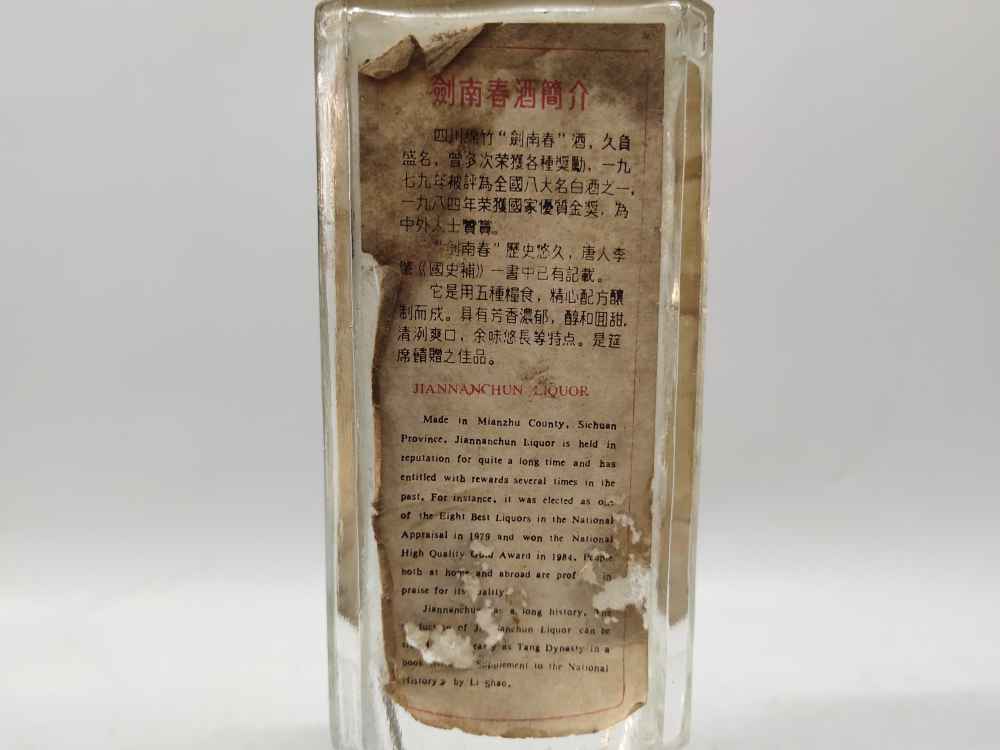 劍南春酒簡介
四川綿竹“劍南春”酒，久負
盛名，曾多次荣獲各種奬勵，一九
七九年被評為全國八大名白酒之一，
一九八四年荣獲國家優質金奖，為
中外人士贊賞。
“劍南春”歷史悠久，唐人李
肇《國史補》一書中已有記載。
它是用五種糧食，精心配方釀
制而成。具有芳香濃郁，醇和囬甜，
清洌爽口，余味悠長等特点。是筵
席餽贈之佳品。
JIANNANCHUN LIQUOR
Made in Mianzhu County, Sichuan
Province, Jiannanchun Liquor is held in
reputation for quite a long time and has
entitled with rewards several times in the
past. For instance, it was elected as one
of the Eight Best Liquors in the National
Appraisal in 1979 and won the National
High Quality Gold Award in 1984. People
both at home and abroad are prof in
praise for its quality.
Jiannanchun has a long history. The
of Jiannanchun Liquor can be
early as Tang Dynasty in a
book Supplement to the National
History》 by Li Shao.